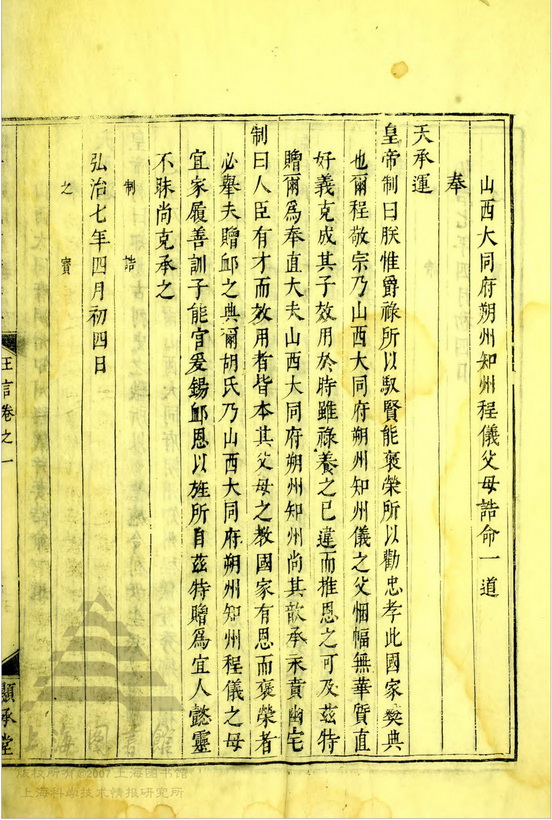 山西大同府朔州知州程儀父母誥命一道
奉
天承運
皇帝制曰朕惟爵祿所以馭賢能褒榮所以勸忠孝此國家奬典
也爾程敬宗乃山西大同府朔州知州儀之父悃愊無華質直
好義克成其子效用於時雖祿養之已違而推恩之可及茲特
贈爾爲奉直大夫山西大同府朔州知州尚其歆承永賁幽宅
制曰人臣有才而效用者皆本其父母之教國家有恩而褒榮者
必舉夫贈卹之典爾胡氏乃山西大同府朔州知州程儀之母
宜家履善訓子能官爰錫卹恩以旌所自茲特贈爲宜人懿靈
不昧尚克承之
制誥
弘治七年四月初四日
之寶
王言卷之一
顯承堂
上海圖書館
版权所有©2007上海图书馆
上海科学技术情报研究所